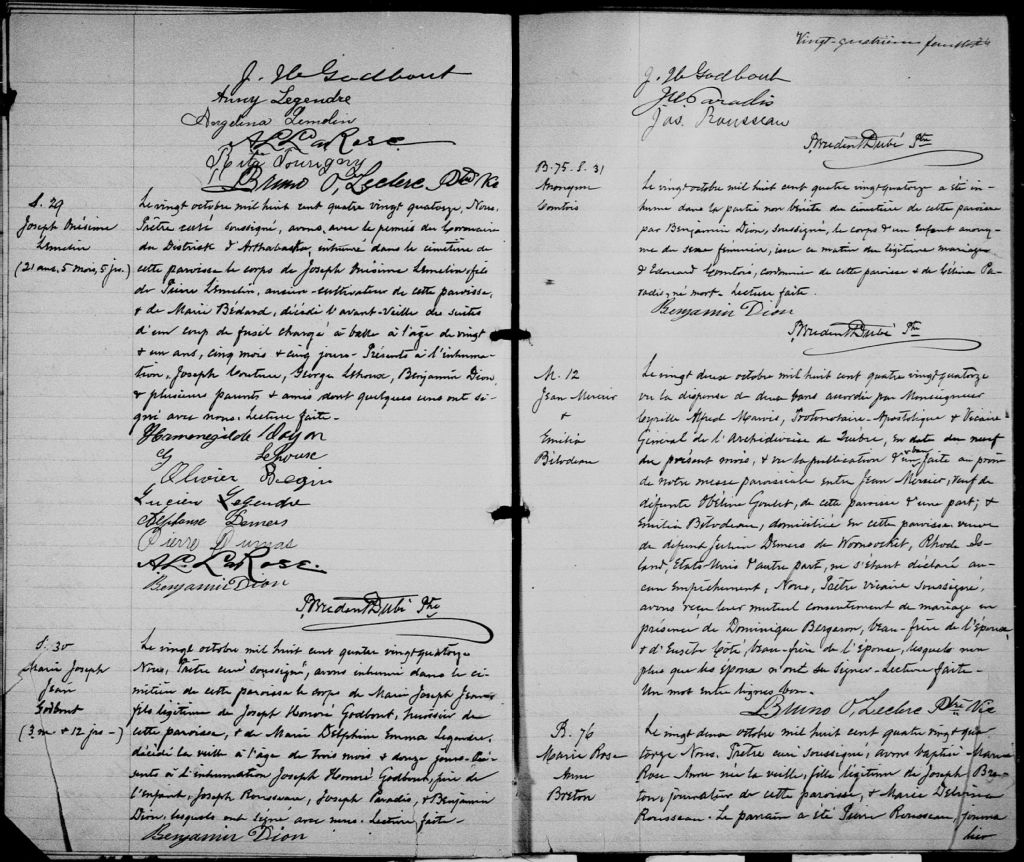 J. H. Godbout
Anny Legendre
Angelina Lemelin
A. L. LaRose
Rita Tourigny
Bruno O. Leclerc Ptre Vic
S. 29
Joseph Onésime
Lemelin
(21 ans, 5 mois, 5 jrs.)
Le vingt octobre mil huit cent quatre vingt quatorze, Nous,
Prêtre curé soussigné, avons, avec le permis du Coronaire
du District d'Arthabaska, inhumé dans le cimetière de
cette paroisse le corps de Joseph Onésime Lemelin, fils
de Pierre Lemelin, ancien-cultivateur de cette paroisse,
& de Marie Bédard, décédé l'avant-veille des suites
d'un coup de fusil chargé à balle à l'âge de vingt
& un ans, cinq mois & cinq jours. Présents à l'inhuma-
tion, Joseph Couture, George Lehoux, Benjamin Dion
& plusieurs parents & amis dont quelques uns ont si-
gné avec nous. Lecture faite.
Hermenegilde Doyon
G Lehouse
Olivier Begin
Lucien Legendre
Alphonse Demers
Pierre Dumas
A. L. LaRose.
Benjamin Dion
P. Prudent Dubé Ptre
S. 30
Marie Joseph
Jean
Godbout
(3 m & 12 jrs -)
Le vingt octobre mil huit cent quatre vingt quatorze
Nous, Prêtre curé soussigné, avons inhumé dans le ci-
metière de cette paroisse le corps de Marie Joseph Jean
fils légitime de Joseph Honoré Godbout, huissier de
cette paroisse, & de Marie Delphine Emma Legendre,
décédé la veille à l'âge de trois mois & douze jours. Pré-
sents à l'inhumation Joseph Honoré Godbout, père de
l'enfant, Joseph Rousseau, Joseph Paradis, & Benjamin
Dion, lesquels ont signé avec nous. Lecture faite.
Benjamin Dion
Vingt-quatrième feuillet
J. H. Godbout
Paradis
Jos. Rousseau
P. Prudent Dubé Ptre
B. 75. S. 31
Anonyme
Comtois
Le vingt octobre mil huit cent quatre vingt quatorze a été in-
humé dans la partie non bénite du cimetière de cette paroisse
par Benjamin Dion, soussigné, le corps d'un enfant anony-
me du sexe féminin, issu ce matin du légitime mariage
d'Edouard Comtois, cordonnier de cette paroisse & de Célina Pa-
radis, né mort. Lecture faite.
Benjamin Dion
P. Prudent Dubé Ptre
M. 12
Jean Mercier
&
Emilia
Bilodeau
Le vingt deux octobre mil huit cent quatre vingt quatorze
vu la dispense de deux bans accordée par Monseigneur
Cyrille Alfred Marois, Protonotaire-Apostolique & Vicaire
Général de l'Archidiocèse de Québec, en date du neuf
du présent mois, & vu la publication d'un ban faite au prône
de notre messe paroissiale entre Jean Mercier, veuf de
défunte Obéline Goulet, de cette paroisse d'une part; &
Emilia Bilodeau, domiciliée en cette paroisse veuve
de défunt Julien Demers de Woonsocket, Rhode Is-
land, Etats-Unis d'autre part, ne s'étant déclaré au-
cun empêchement, Nous, Prêtre vicaire soussigné,
avons reçu leur mutuel consentement de mariage en
présence de Dominique Bergeron, beau-frère de l'Epoux,
& d'Eusèbe Côté, beau-frère de l'Epouse, lesquels non
plus que les Epoux n'ont su signer. Lecture faite.
Un mot entre lignes bon.
Bruno O. Leclerc Ptre Vic
B. 76
Marie Rose
Anna
Breton
Le vingt deux octobre mil huit cent quatre vingt qua-
torze Nous, Prêtre curé soussigné, avons baptisé Marie
Rose Anna née la veille, fille légitime de Joseph Bre-
ton, journalier de cette paroisse, & Marie Delvina
Rousseau. Le parrain a été Pierre Rousseau, journa
lier